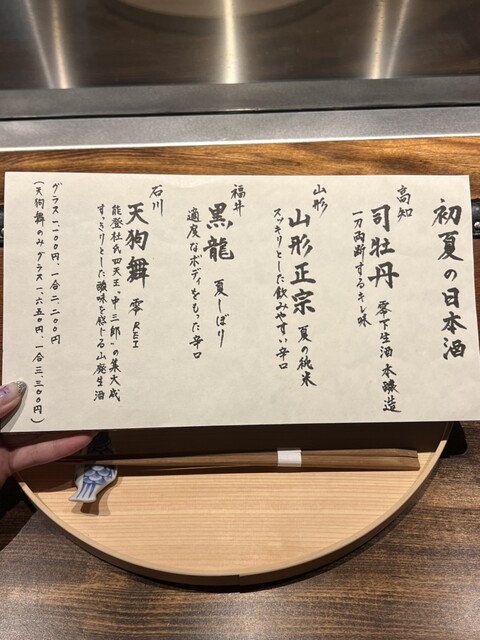 初夏の日本酒
高知
司牡丹 零下生酒 本醸造
一刀両断するキレ味
山形
山形正宗 夏の純米
スッキリとした飲みやすい辛口
福井
黒龍 夏しぼり
適度なボディをもった辛口
石川
天狗舞 零 REI
能登杜氏四天王"中三郎"の集大成
すっきりとした酸味を感じる山廃生酒
グラス一、一〇〇円、一合二、二〇〇円
(天狗舞のみグラス一、六五〇円、一合三、三〇〇円)